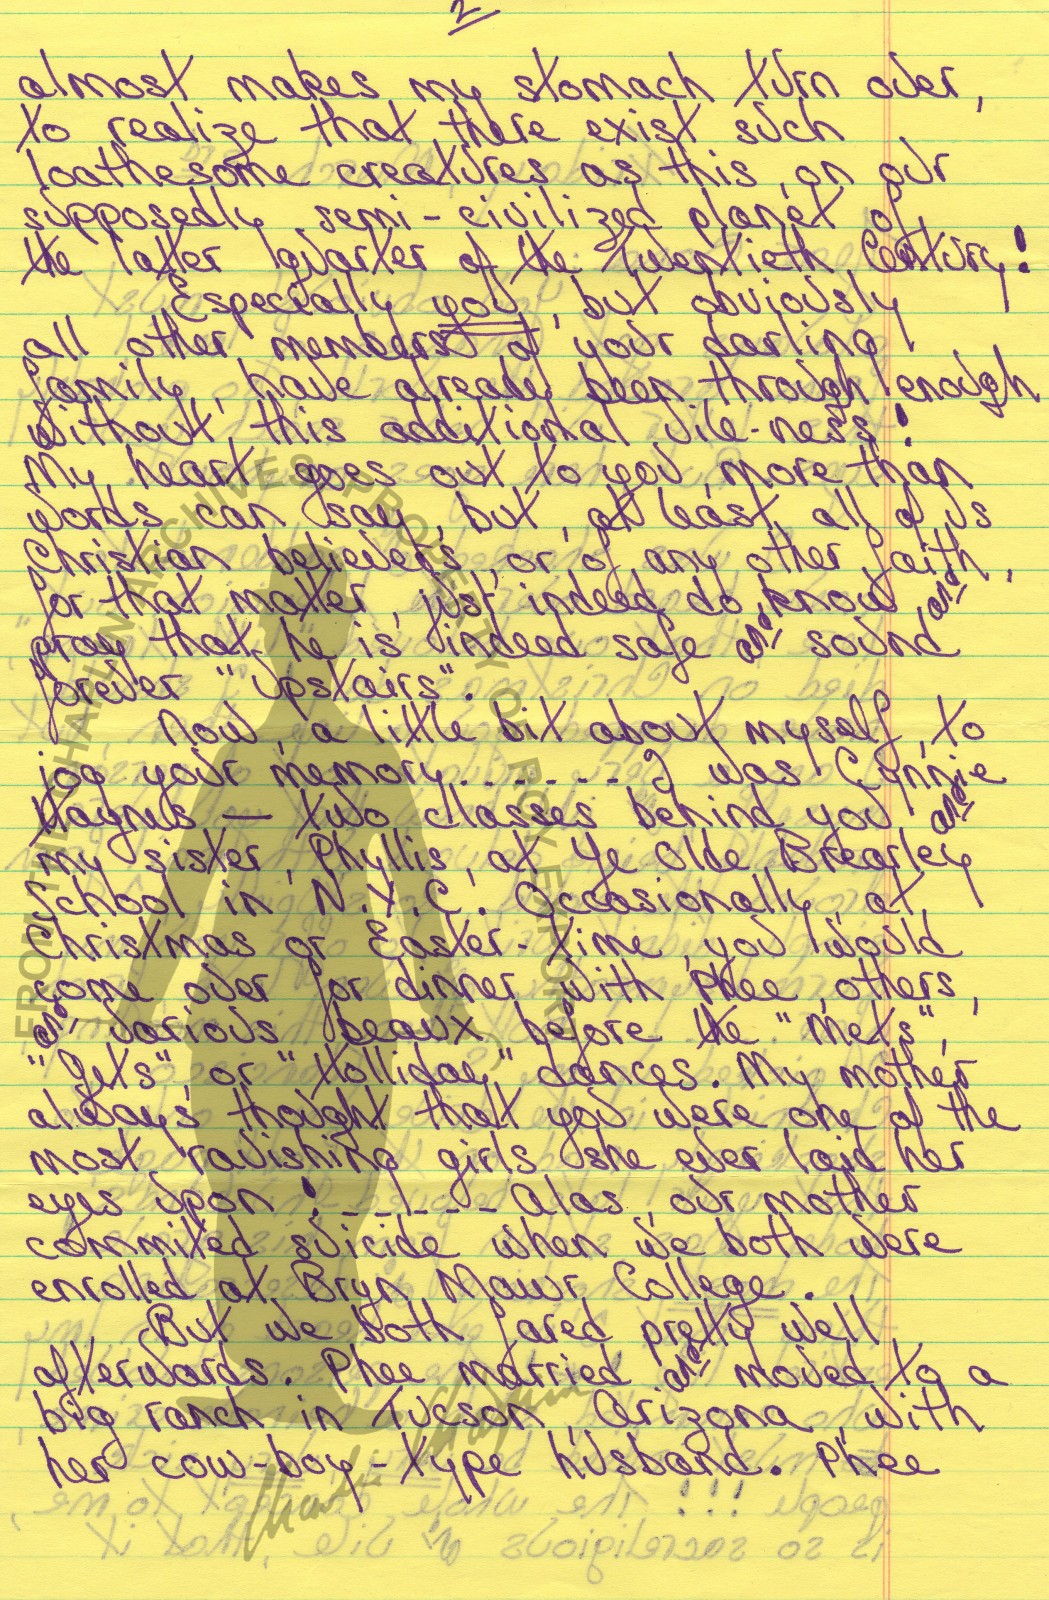 2
almost makes my stomach turn over,
to realize that there exist such
loathesome creatures as this, on our
supposedly semi-civilized planet of
the latter quarter of the Twentieth Century!
Especially you, but obviously
all other members of your darling
family, have already been through enough
without this additional vile-ness!
My heart goes out to you, more than
words can say, but, at least, all of us
Christian believers, or of any other faith,
for that matter, just indeed do know and
pray that he is indeed safe and sound
forever "upstairs".
Now, a little bit about myself, to
jog your memory...... I was Connie
Hagnes — two classes behind you and
my sister, Phyllis, at Ye Olde Brearley
School in N.Y.C. Occasionally, at
Christmas or Easter-time, you would
come over for dinner with Phee, others,
and various beaux before the "Mets",
"Gets", or "Holliday" dances. My mother
always thought that you were one of the
most ravishing girls she ever laid her
eyes upon! ------ Alas, our mother
committed suicide when we both were
enrolled at Bryn Mawr College.
But we both fared pretty well
afterwards. Phee married and moved to a
big ranch in Tucson, Arizona, with
her cow-boy-type husband. Phee
FROM THE CHAPLIN ARCHIVES PROPERTY OF ROY EXPORT